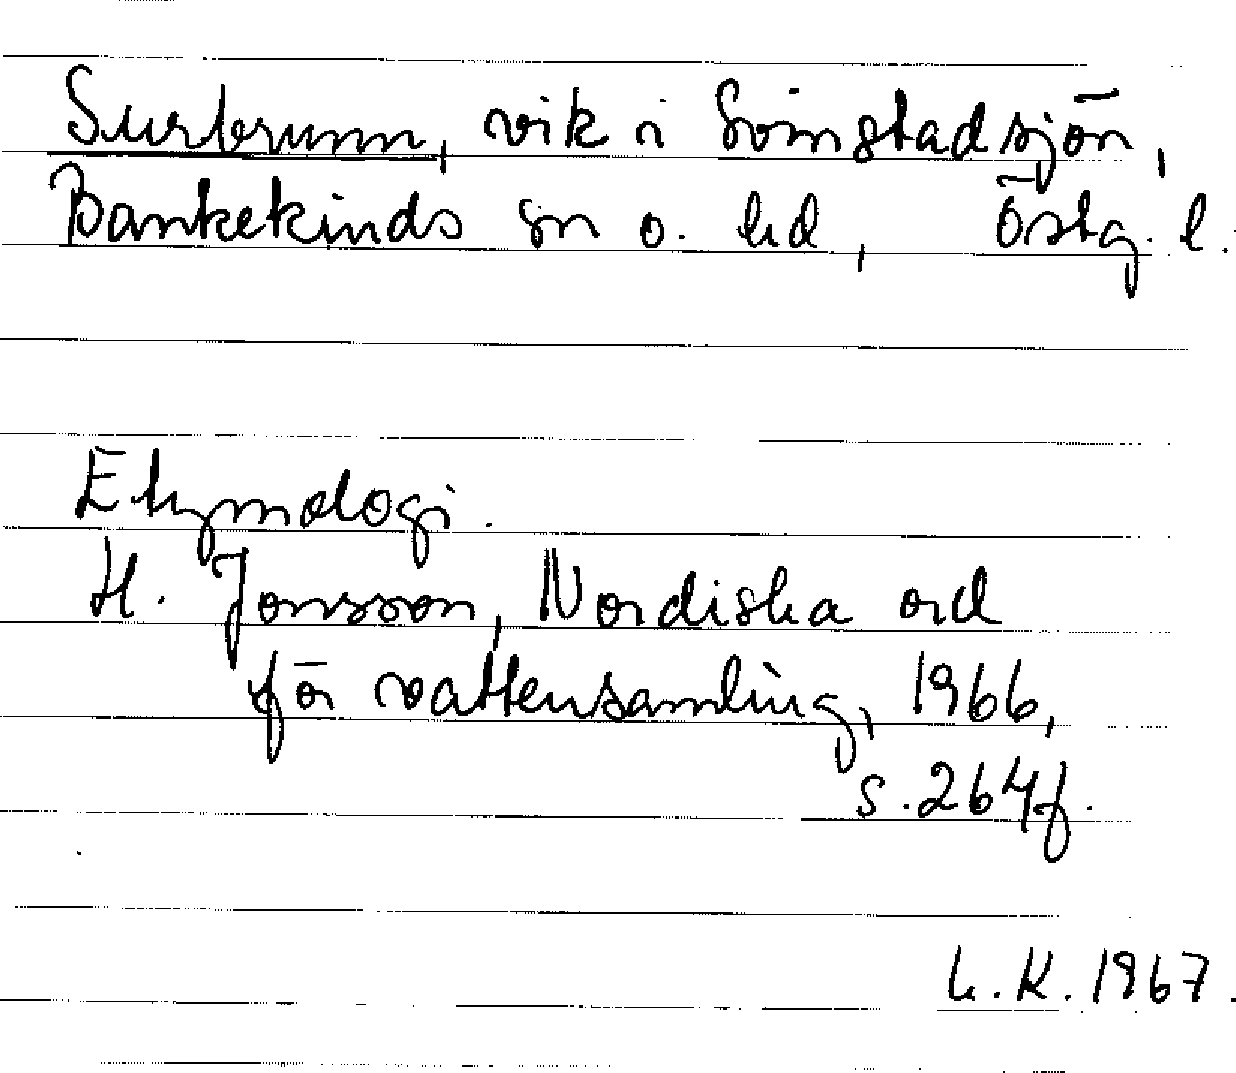 Surbrunn, vik i Svinstadsjön,
Bankekinds sn o. hd, Östg. l.
Etymologi.
H. Jonsson, Nordiska ord
för vattensamling, 1966,
s. 264f.
L. K. 1967.